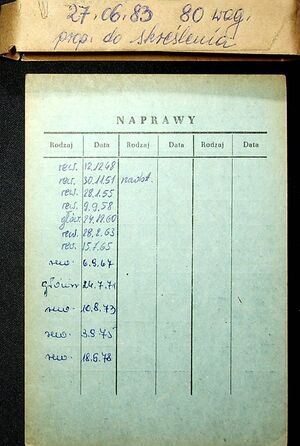 27.06.83 80 wag.
prop. do skreślenia
NAPRAWY
Rodzaj Data Rodzaj Data Rodzaj Data
rew. 12.12.48
rew. 30.11.51
rew. 28.1.55
rew. 9.9.58
głów. 24.12.60
rew. 28.2.63
rew. 15.1.65
rew. 6.9.67
główn 24.7.71
rew. 10.8.73
rew. 3.9.75
rew. 18.9.78